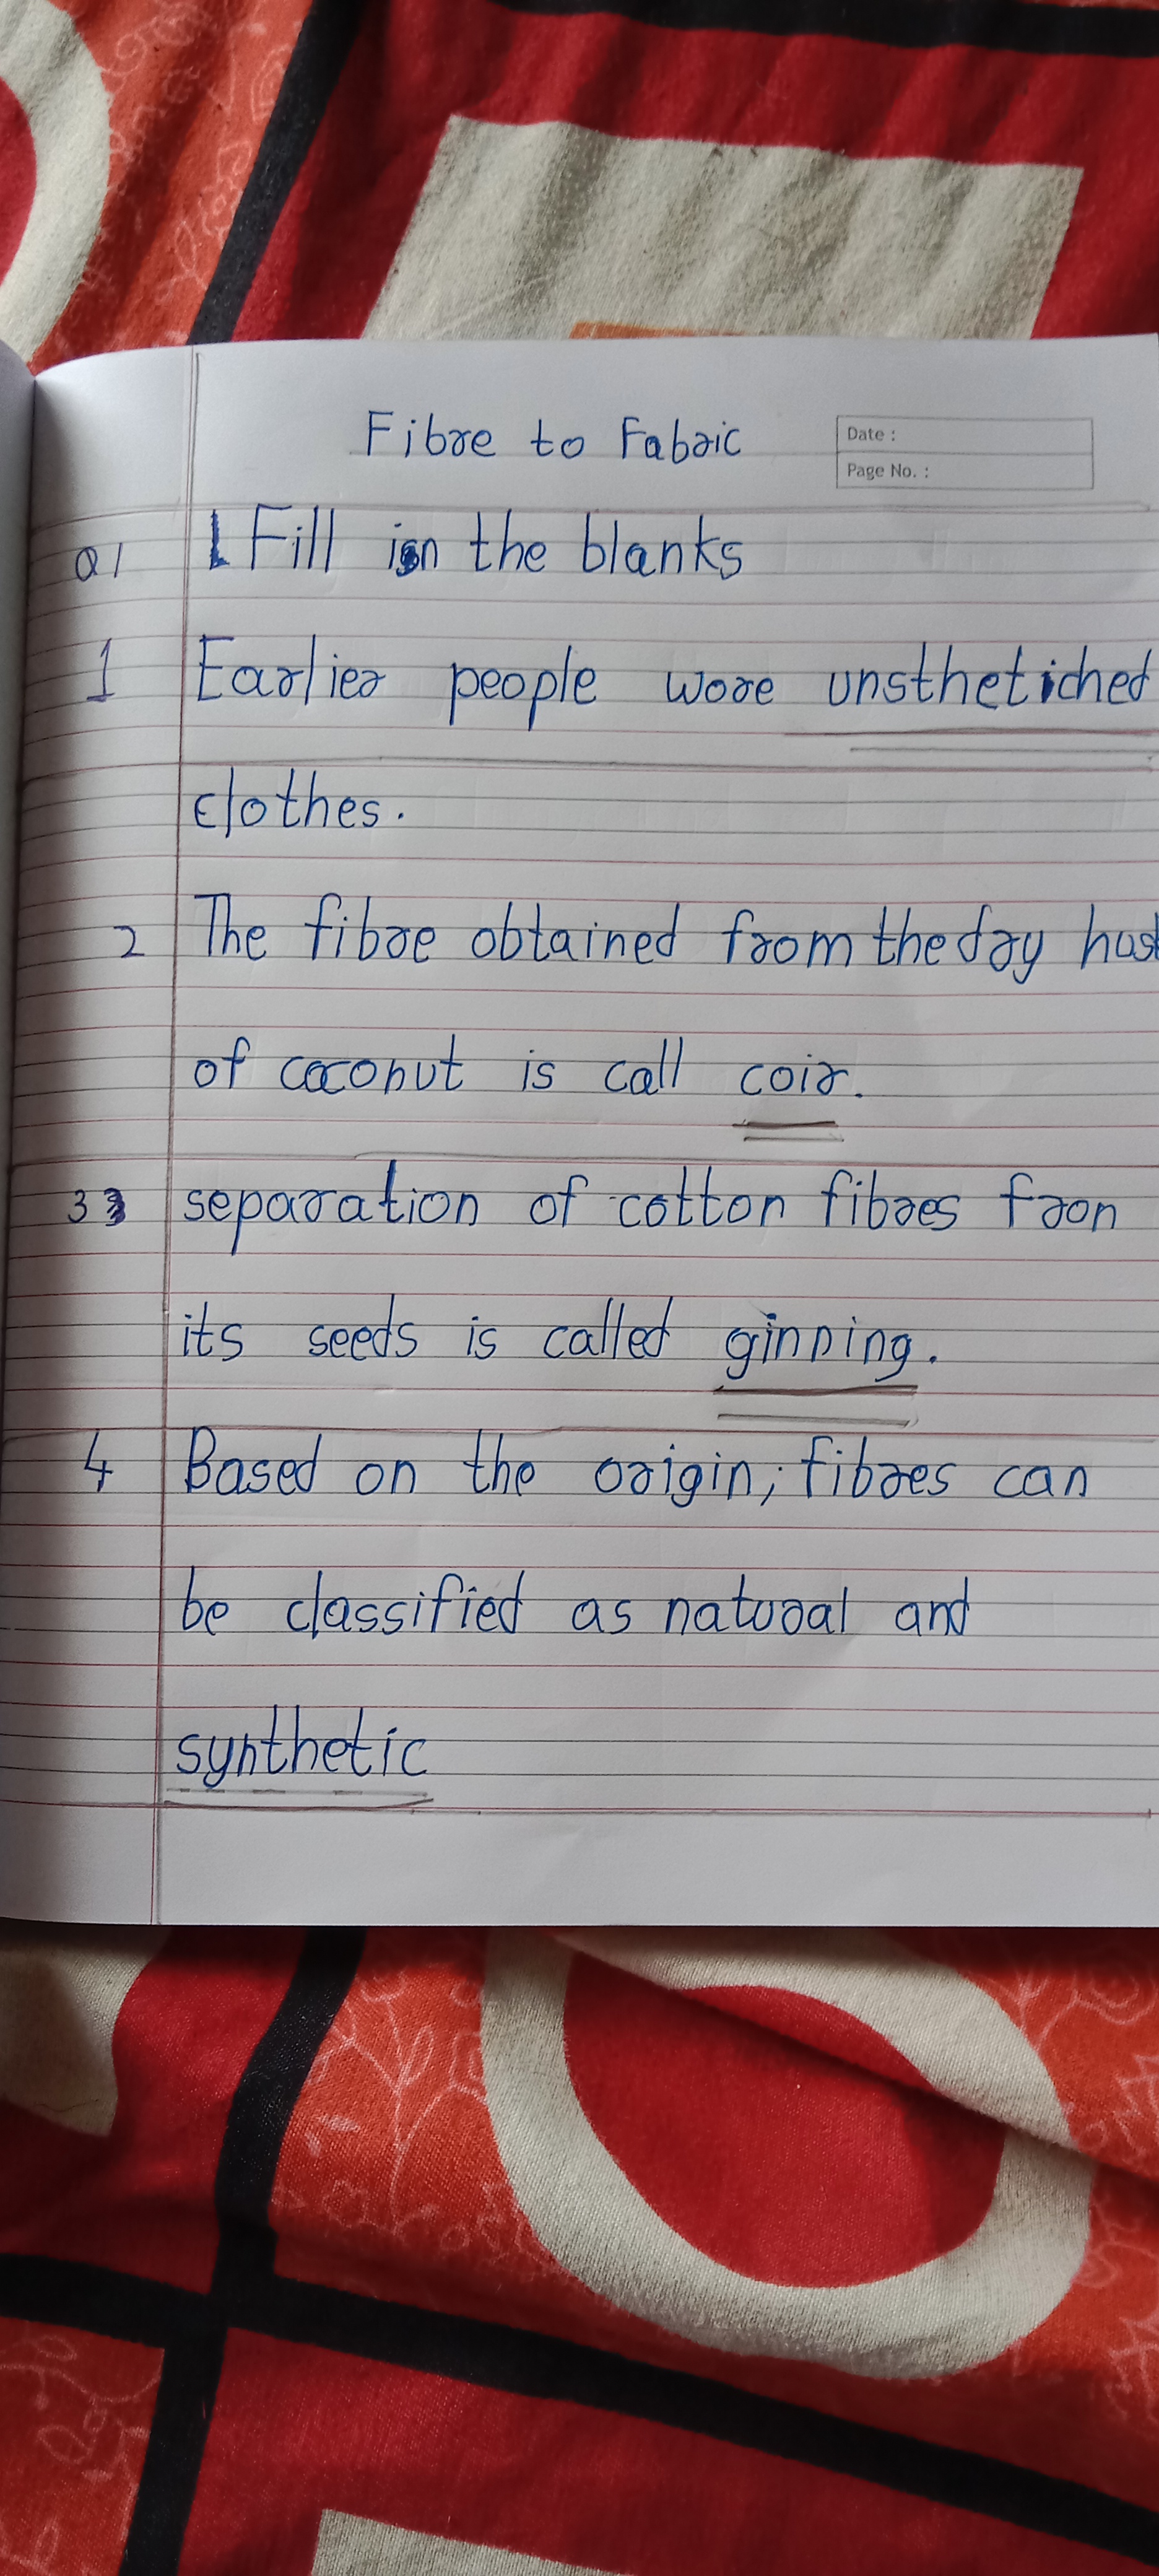 Fibre to Fabric
Date :
Page No. :
Q1 1 Fill in the blanks
1 Earlier people wore unsthetiched
clothes.
2 The fibre obtained from the dry
of coconut is call coir.
3 separation of cotton fibres fron
its seeds is called ginning.
4 Based on the origin, fibres can
be classified as natural and
synthetic